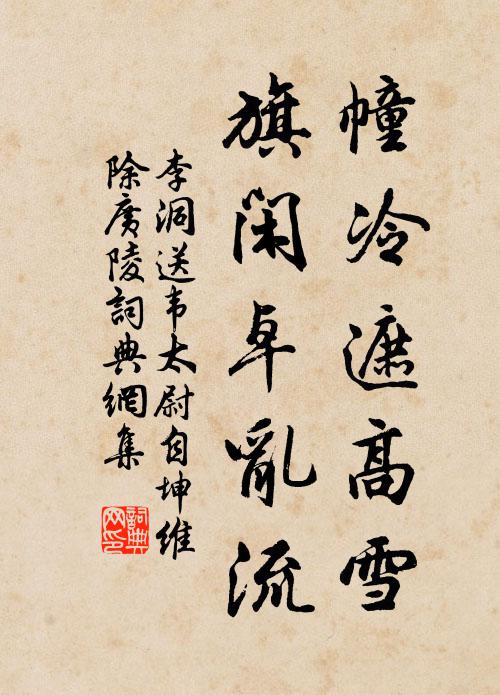 幢冷遮高雪
旗閑卓亂流
李洞送韦太尉自坤維
除廣陵詞典網集
詞典
网印